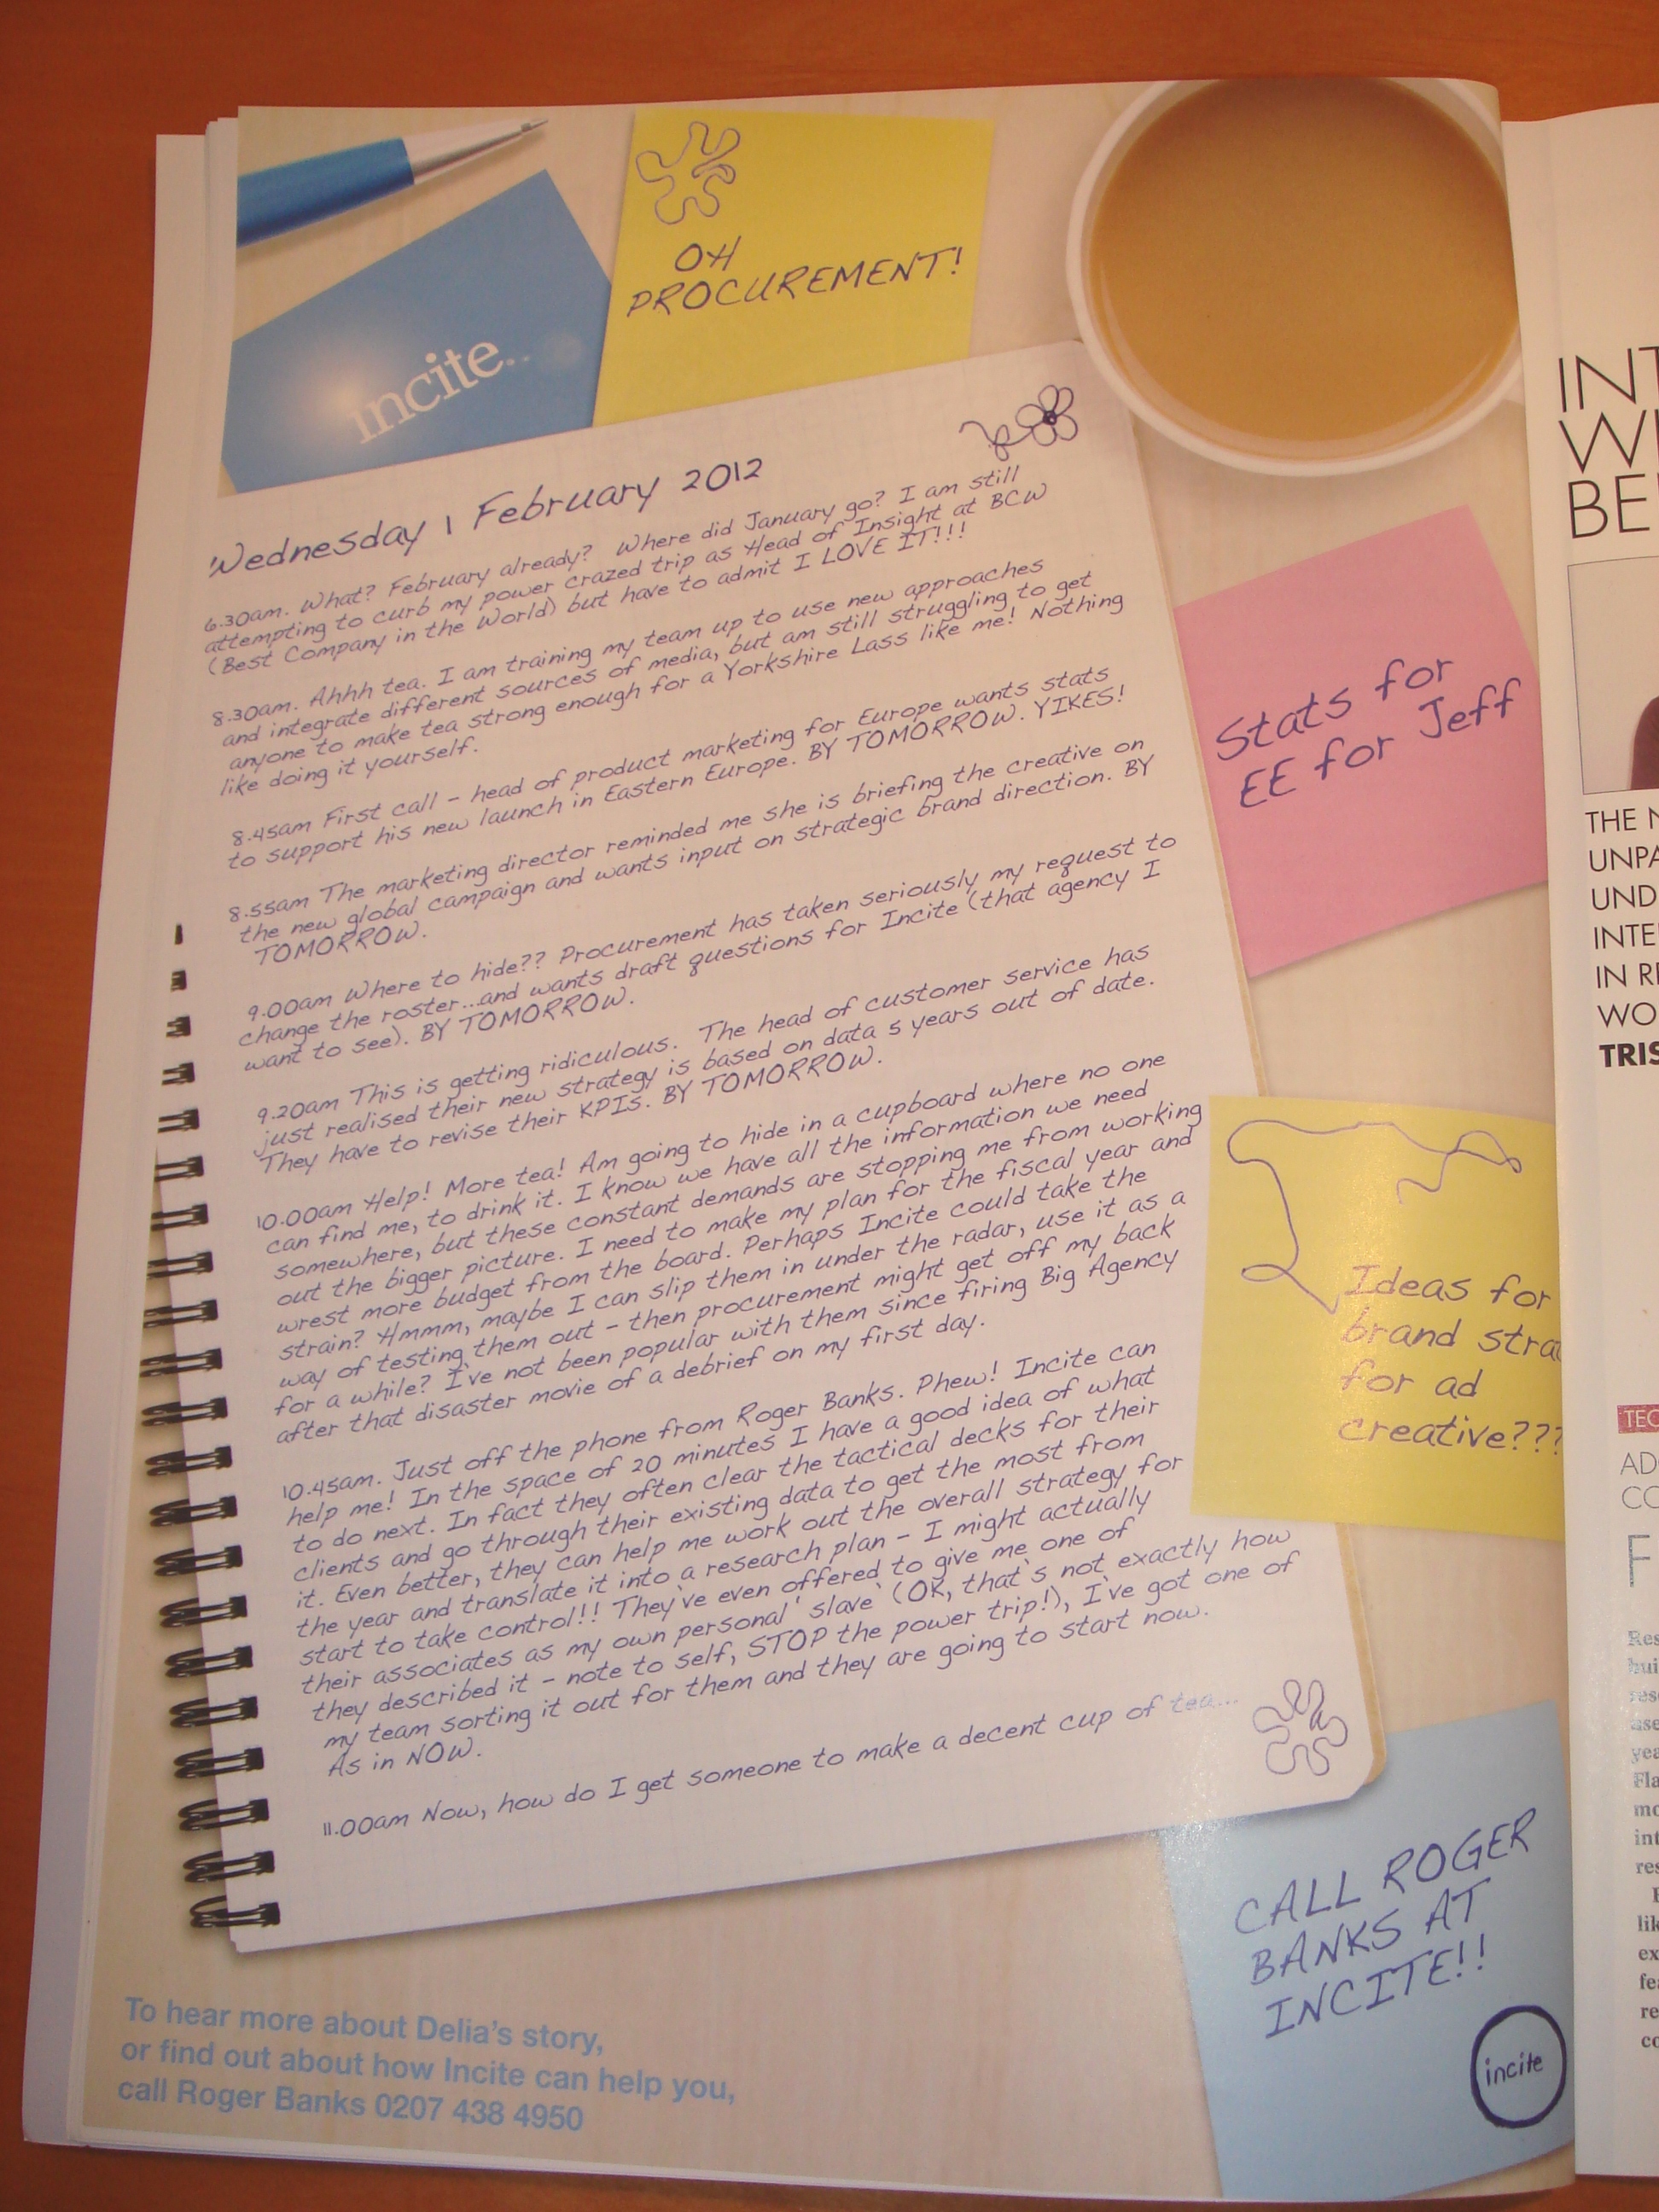 incite..
OH
PROCUREMENT!
Wednesday 1 February 2012
6.30am. What? February already? Where did January go? I am still
attempting to curb my power crazed trip as Head of Insight at BCW
(Best Company in the World) but have to admit I LOVE IT!!!
8.30am. Ahhh tea. I am training my team up to use new approaches
and integrate different sources of media, but am still struggling to get
anyone to make tea strong enough for a Yorkshire Lass like me! Nothing
like doing it yourself.
8.45am First call - head of product marketing for Europe wants stats
to support his new launch in Eastern Europe. BY TOMORROW. YIKES!
8.55am The marketing director reminded me she is briefing the creative on
the new global campaign and wants input on strategic brand direction. BY
TOMORROW.
9.00am Where to hide?? Procurement has taken seriously my request to
change the roster...and wants draft questions for Incite (that agency I
want to see). BY TOMORROW.
9.20am This is getting ridiculous. The head of customer service has
just realised their new strategy is based on data 5 years out of date.
They have to revise their KPIs. BY TOMORROW.
10.00am Help! More tea! Am going to hide in a cupboard where no one
can find me, to drink it. I know we have all the information we need
somewhere, but these constant demands are stopping me from working
out the bigger picture. I need to make my plan for the fiscal year and
wrest more budget from the board. Perhaps Incite could take the
strain? Hmmm, maybe I can slip them in under the radar, use it as a
way of testing them out - then procurement might get off my back
for a while? I've not been popular with them since firing Big Agency
after that disaster movie of a debrief on my first day.
10.45am. Just off the phone from Roger Banks. Phew! Incite can
help me! In the space of 20 minutes I have a good idea of what
to do next. In fact they often clear the tactical decks for their
clients and go through their existing data to get the most from
it. Even better, they can help me work out the overall strategy for
the year and translate it into a research plan - I might actually
start to take control!! They've even offered to give me one of
their associates as my own personal 'slave' (OK, that's not exactly how
they described it - note to self, STOP the power trip!), I've got one of
my team sorting it out for them and they are going to start now.
As in NOW.
11.00am Now, how do I get someone to make a decent cup of tea...
Stats for
EE for Jeff
Ideas for
brand stra
for ad
creative???
CALL ROGER
BANKS AT
INCITE!!
incite
To hear more about Delia's story,
or find out about how Incite can help you,
call Roger Banks 0207 438 4950
INT
WI
BE
THE
UNPA
UND
INTE
IN RE
WO
TRIS
TEC
AD
CO
F
Res
bui
res
use
yea
Fla
mo
int
res
lik
ex
fea
re
co